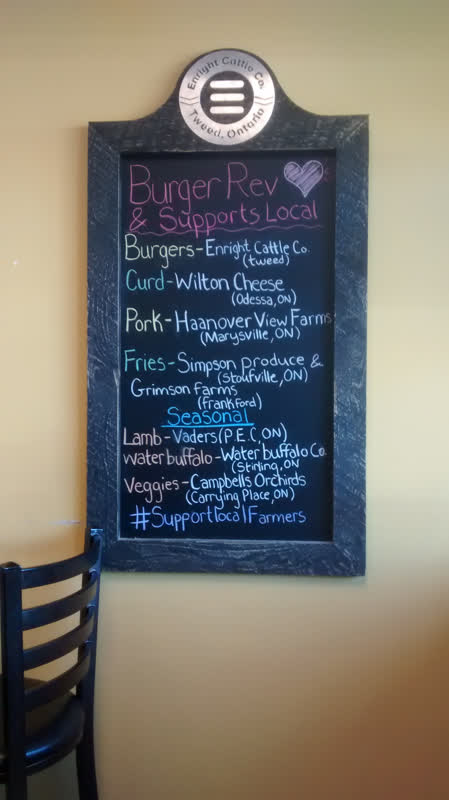 Enright Cattle Co.
Tweed, Ontario
Burger Rev
& Supports Local
Burgers-Enright Cattle Co.
(tweed)
Curd-Wilton Cheese
(Odessa, ON)
Pork-Haanover View Farms
(Marysville, ON)
Fries-Simpson produce &
(Stoufville, ON)
Grimson farms
(frankford)
Seasonal
Lamb-Vaders(P.E.C, ON)
water buffalo-Water buffalo Co.
(Stirling, ON
Veggies-Campbells Orchirds
(Carrying Place, ON)
#SupportlocalFarmers